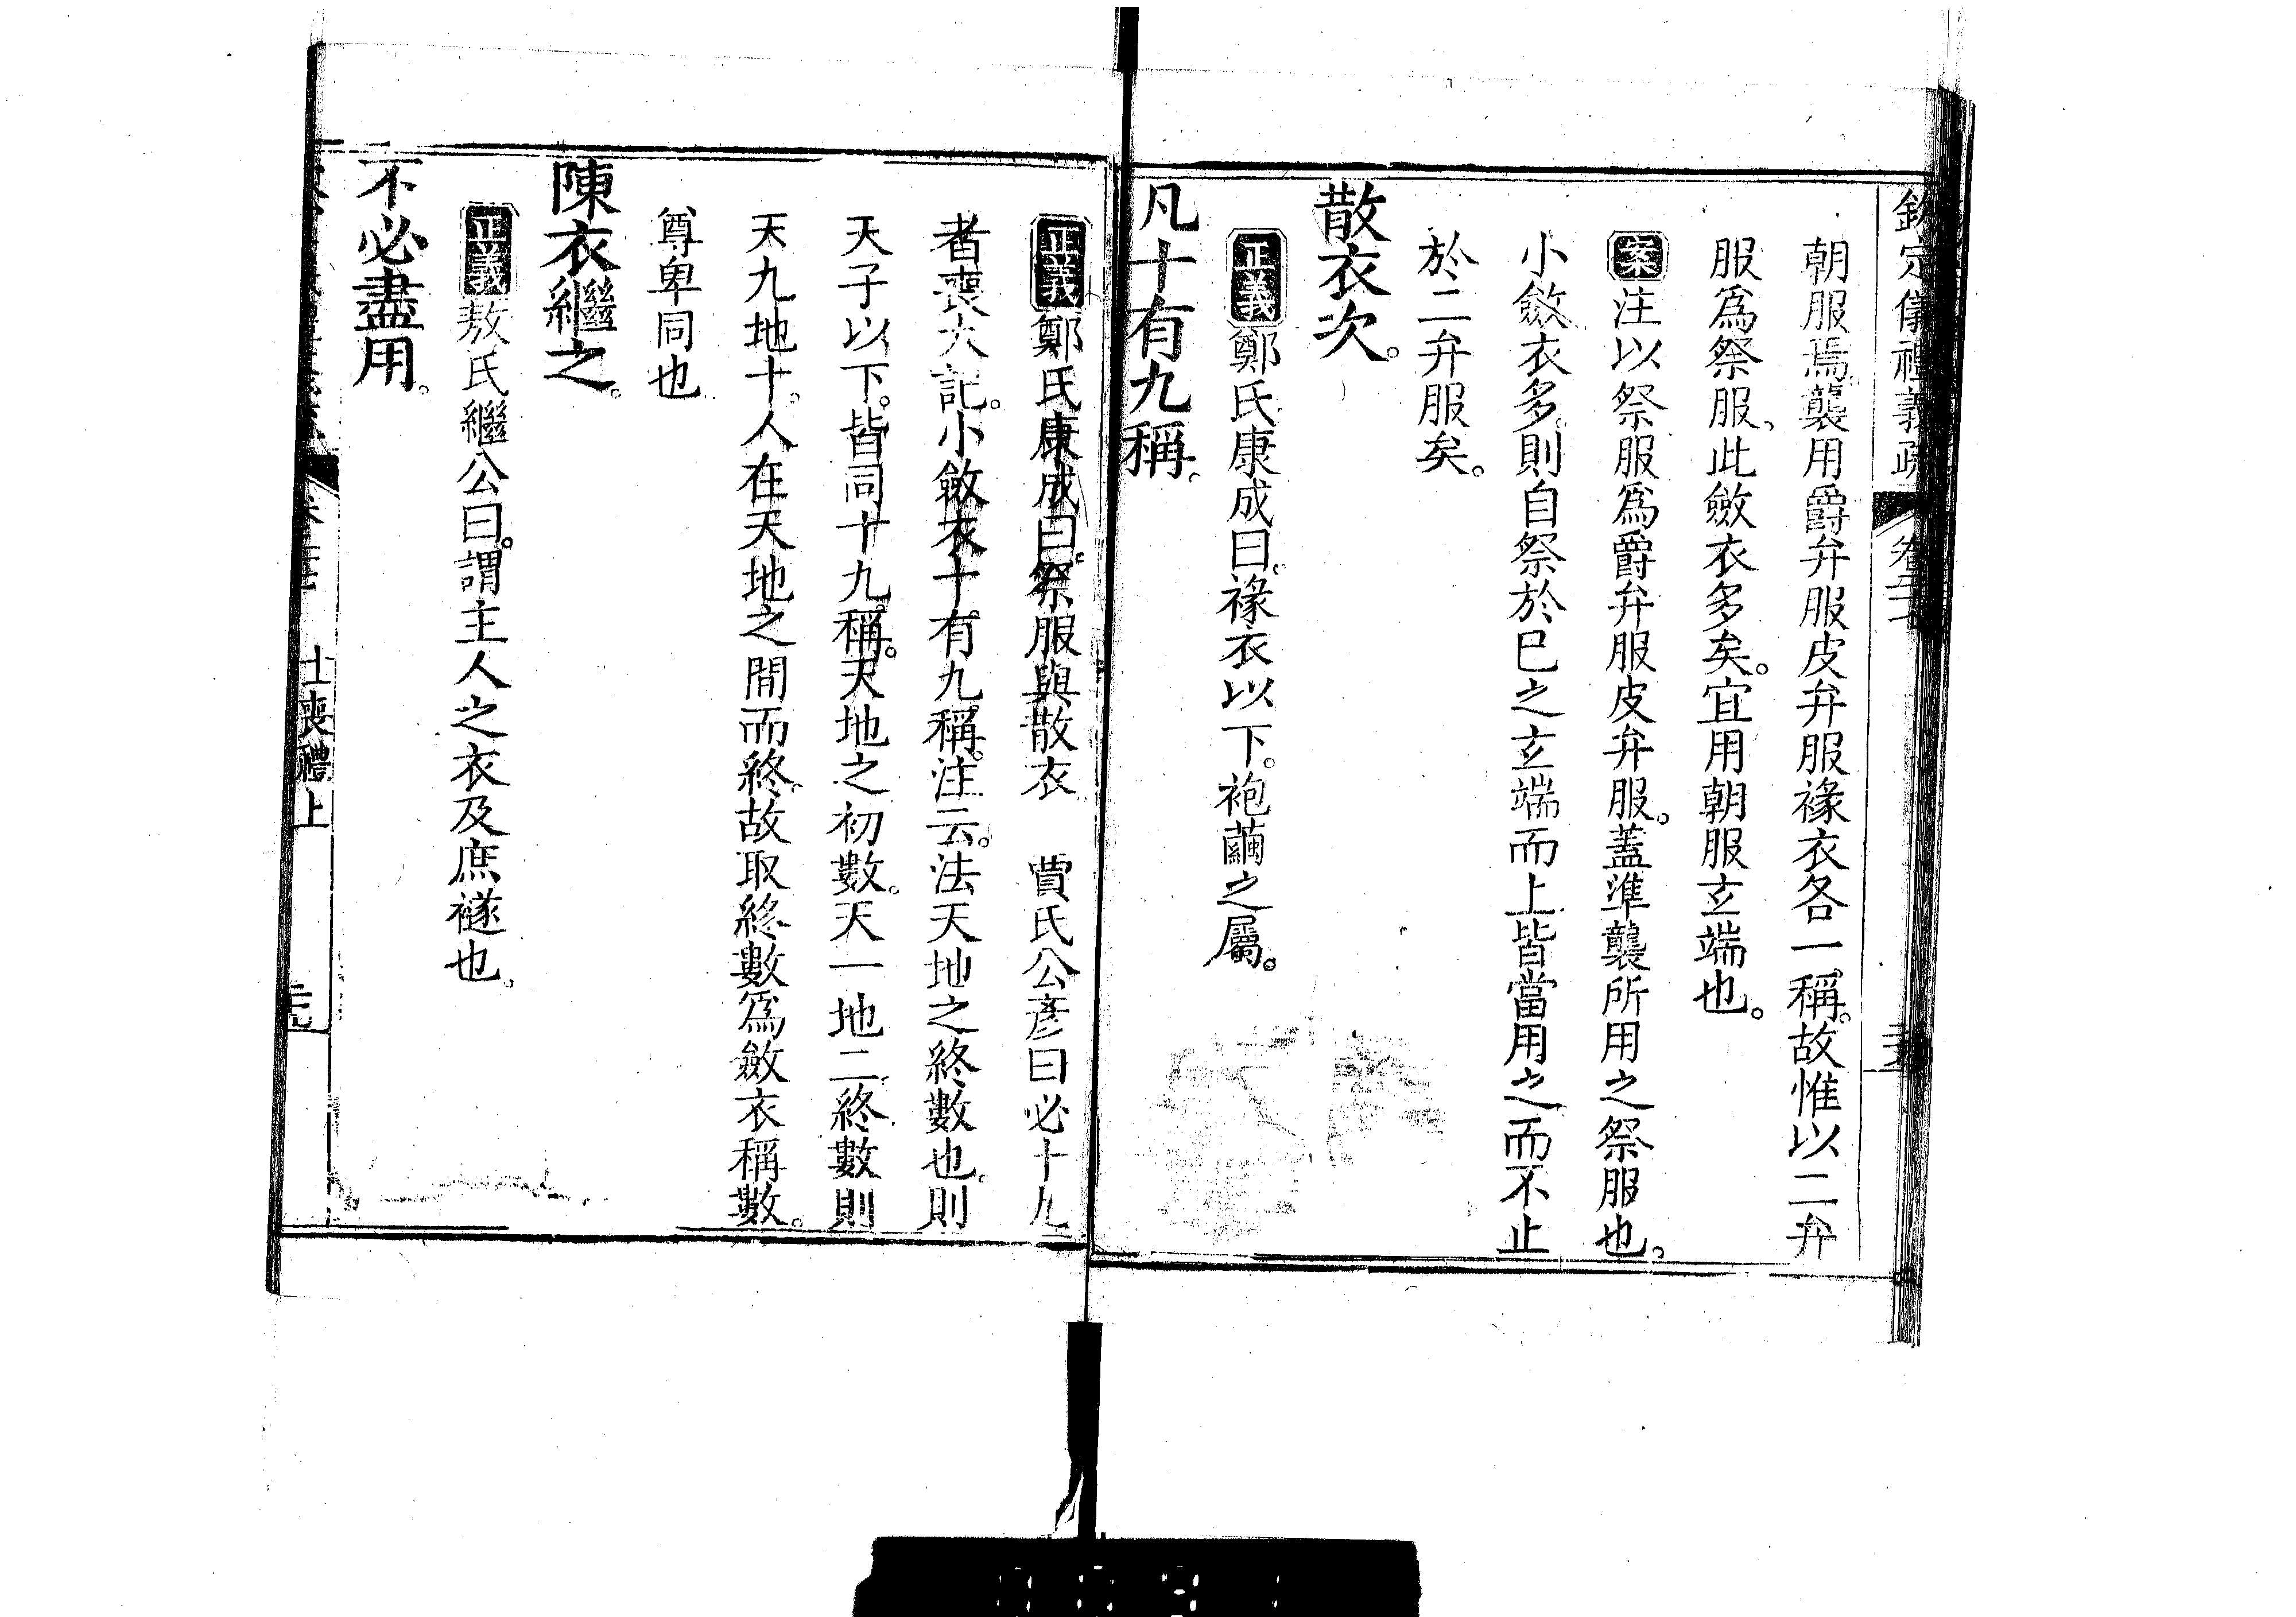 欽定儀禮義疏 卷二十七
朝服焉。襲用爵弁服皮弁服褖衣各一稱。故惟以二弁
服爲祭服、此斂衣多矣。宜用朝服玄端也。
案注以祭服爲爵弁服皮弁服。蓋準襲所用之祭服也。
小斂衣多。則自祭於巳之玄端而上皆當用之。而不止
於二弁服矣。
散衣次。
正義鄭氏康成曰。褖衣以下。袍繭之屬。
凡十有九稱。
正義鄭氏康成曰。祭服與散衣 賈氏公彥曰必十九
者喪大記。小斂衣十有九稱。注云。法天地之終數也。則
天子以下。皆同十九稱。天地之初數。天一地二終數則
天九地十。人在天地之間而終。故取終數爲斂衣稱數。
尊卑同也
陳衣繼之。
正義敖氏繼公曰。謂主人之衣及庶襚也。
不必盡用。
士喪禮上